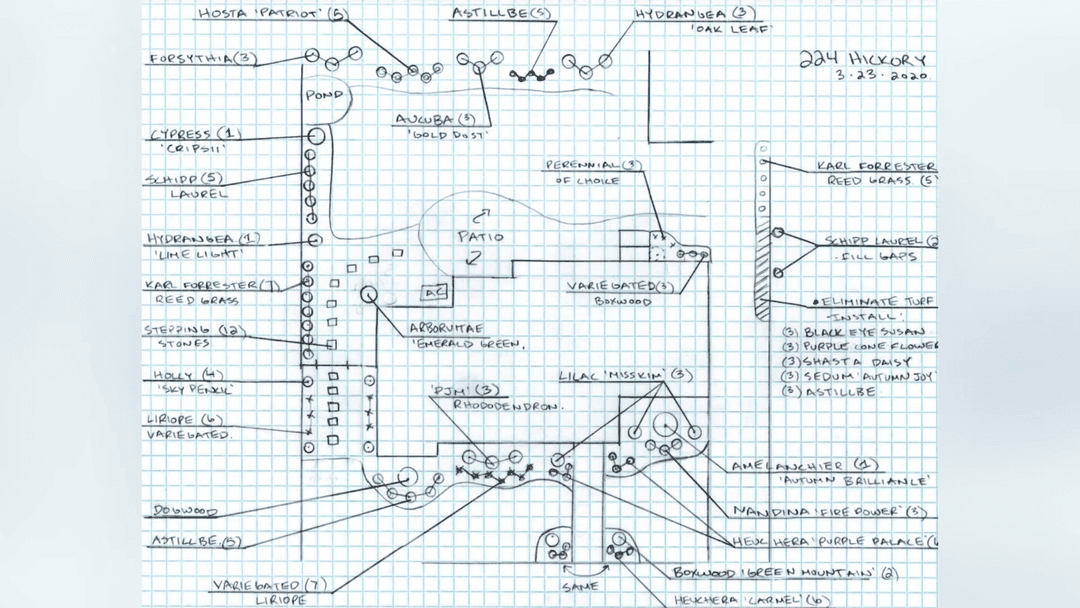 HOSTA 'PATRIOT' (5)
ASTILBE (5)
HYDRANGEA (3)
'OAK LEAF'
224 HICKORY
3·23·2020
FORSYTHIA (3)
POND
AUCUBA (3)
'GOLD DUST'
CYPRESS (1)
'CRIPSII'
PERENNIAL (3)
OF CHOICE
KARL FORRESTER
REED GRASS (5)
SCHIPP (5)
LAUREL
PATIO
HYDRANGEA (1)
'LIME LIGHT'
SCHIPP LAUREL (2
-FILL GAPS
KARL FORRESTER (7)
REED GRASS
A/C
VARIEGATED (3)
BOXWOOD
ELIMINATE TURF
-INSTALL:
(3) BLACK EYE SUSAN
(3) PURPLE CONE FLOWER
(3) SHASTA DAISY
(3) SEDUM 'AUTUMN JOY'
(3) ASTILLBE
STEPPING (12)
STONES
ARBORVITAE
'EMERALD GREEN.
HOLLY (4)
'SKY PENCIL'
'PJM' (3)
RHODODENDRON.
LILAC 'MISSKIM' (3)
LIRIOPE (6)
VARIEGATED.
AMELANCHIER (1)
'AUTUMN BRILLIANCE'
DOGWOOD
NANDINA 'FIRE POWER' (3)
ASTILLBE (5)
HEUCHERA 'PURPLE PALACE' (6
VARIEGATED (7)
LIRIOPE
SAME
BOXWOOD 'GREEN MOUNTAIN' (2)
HEUCHERA 'CARMEL' (6)